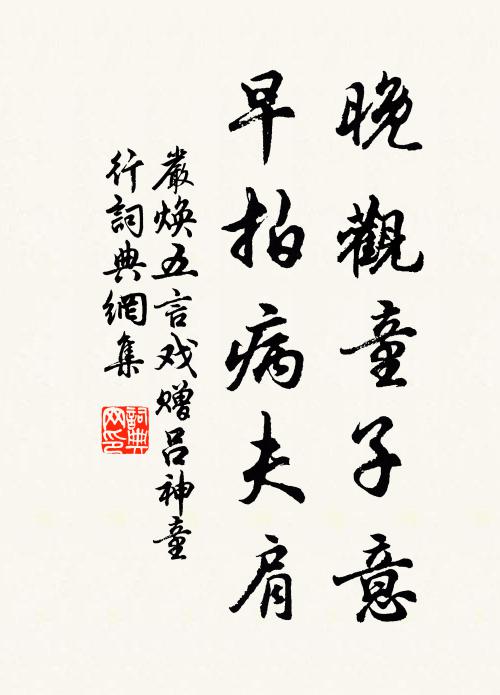 晚觀童子意
早拍病夫肩
嚴煥五言戏贈吕神童
行詞典網集
詞典网印